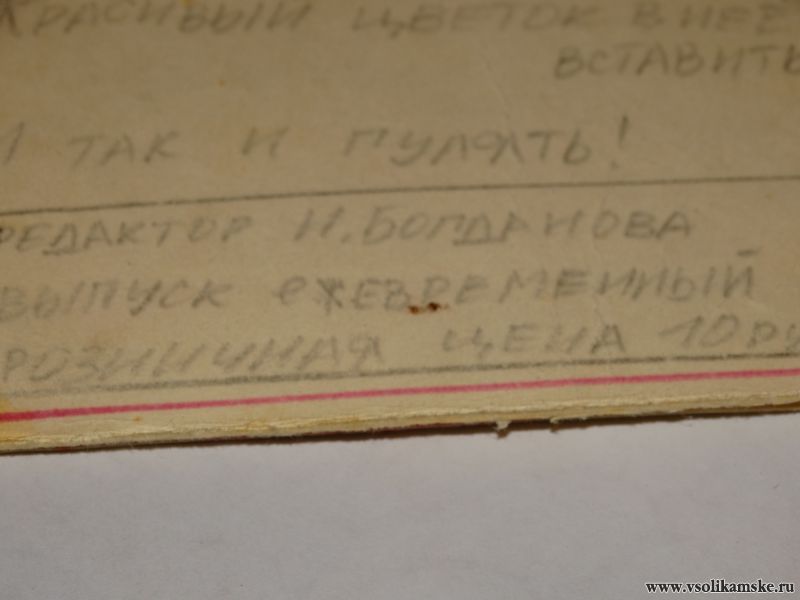 КРАСИВЫЙ ЦВЕТОК В НЕЁ
ВСТАВИТЬ
И ТАК И ПУЛЯТЬ!
РЕДАКТОР Н. БОГДАНОВА
ВЫПУСК ЕЖЕВРЕМЕННЫЙ
РОЗНИЧНАЯ ЦЕНА 10 РУ
www.vsolikamske.ru